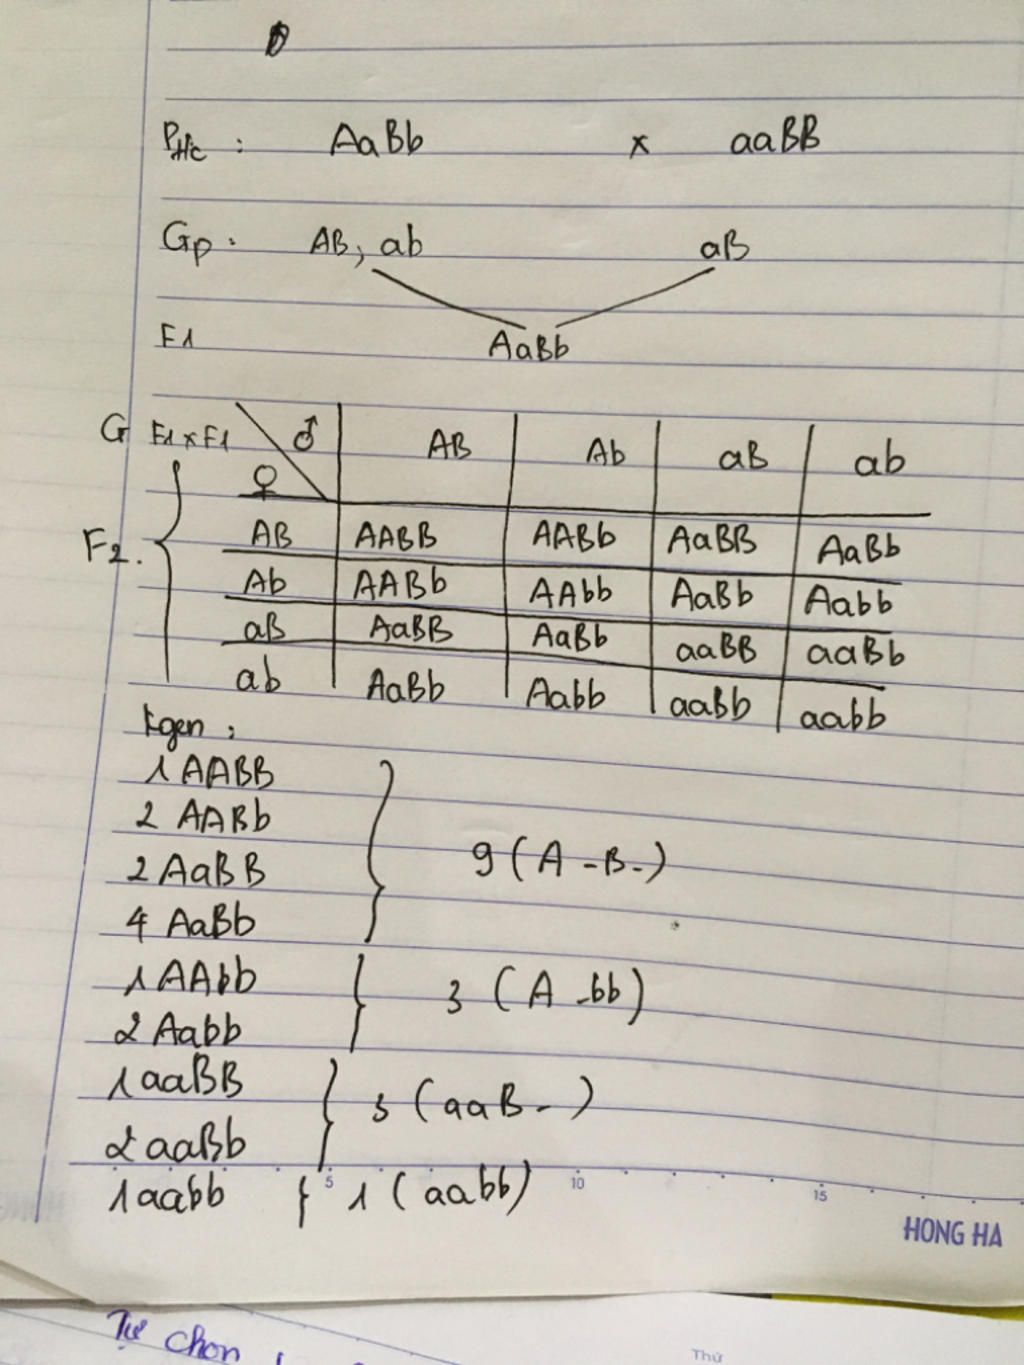 Ptlc : AaBb x aaBB
Gp : AB, ab aB
F1 AaBb
G F1 x F1 ♂ AB Ab aB ab
♀
F2. AB AABB AABb AaBB AaBb
Ab AABb AAbb AaBb Aabb
aB AaBB AaBb aaBB aaBb
ab AaBb Aabb aaBb aabb
Kgen :
1 AABB
2 AABb
2 AaBB 9 (A -B-)
4 AaBb
1 AAbb 3 (A -bb)
2 Aabb
1 aaBB 3 (aaB-)
2 aaBb
1 aabb } 1 (aabb)
5 10 15
HONG HA
Tự chọn
Thứ